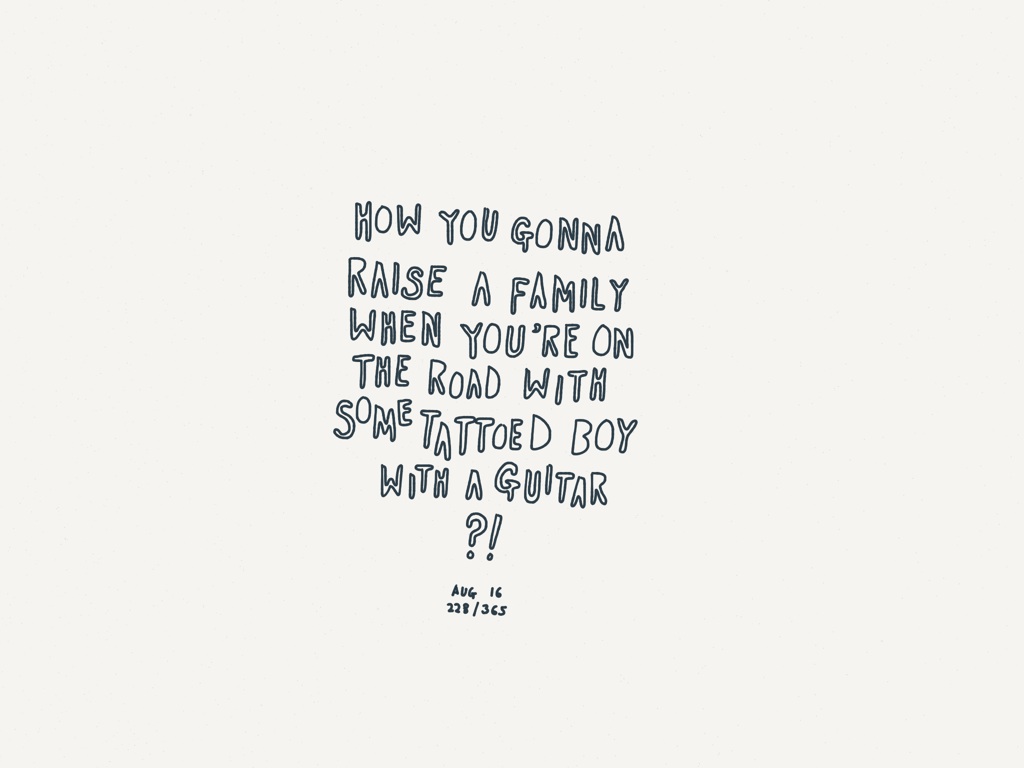 HOW YOU GONNA
RAISE A FAMILY
WHEN YOU'RE ON
THE ROAD WITH
SOME TATTOED BOY
WITH A GUITAR
?!
AUG 16
228/365